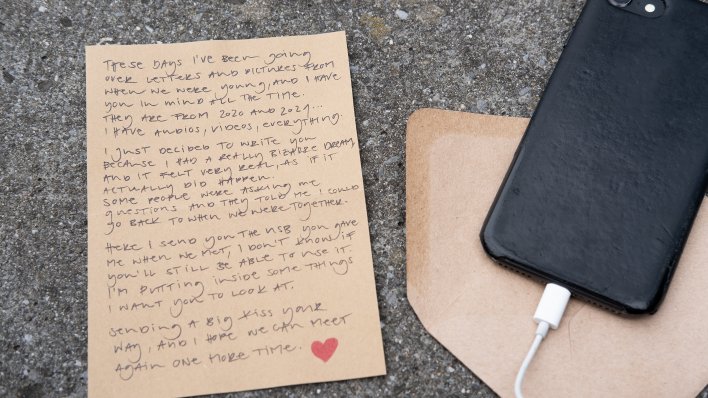 These days I've been going
over letters and pictures from
when we were young, and I have
you in mind all the time.
They are from 2020 and 2021...
I have audios, videos, everything.
I just decided to write you
because I had a really bizarre dream,
and it felt very real, as if it
actually did happen.
Some people were asking me
questions and they told me I could
go back to when we were together.
Here I send you the USB you gave
me when we met, I don't know if
you'll still be able to use it.
I'm putting inside some things
I want you to look at.
Sending a big kiss your
way, and I hope we can meet
again one more time.